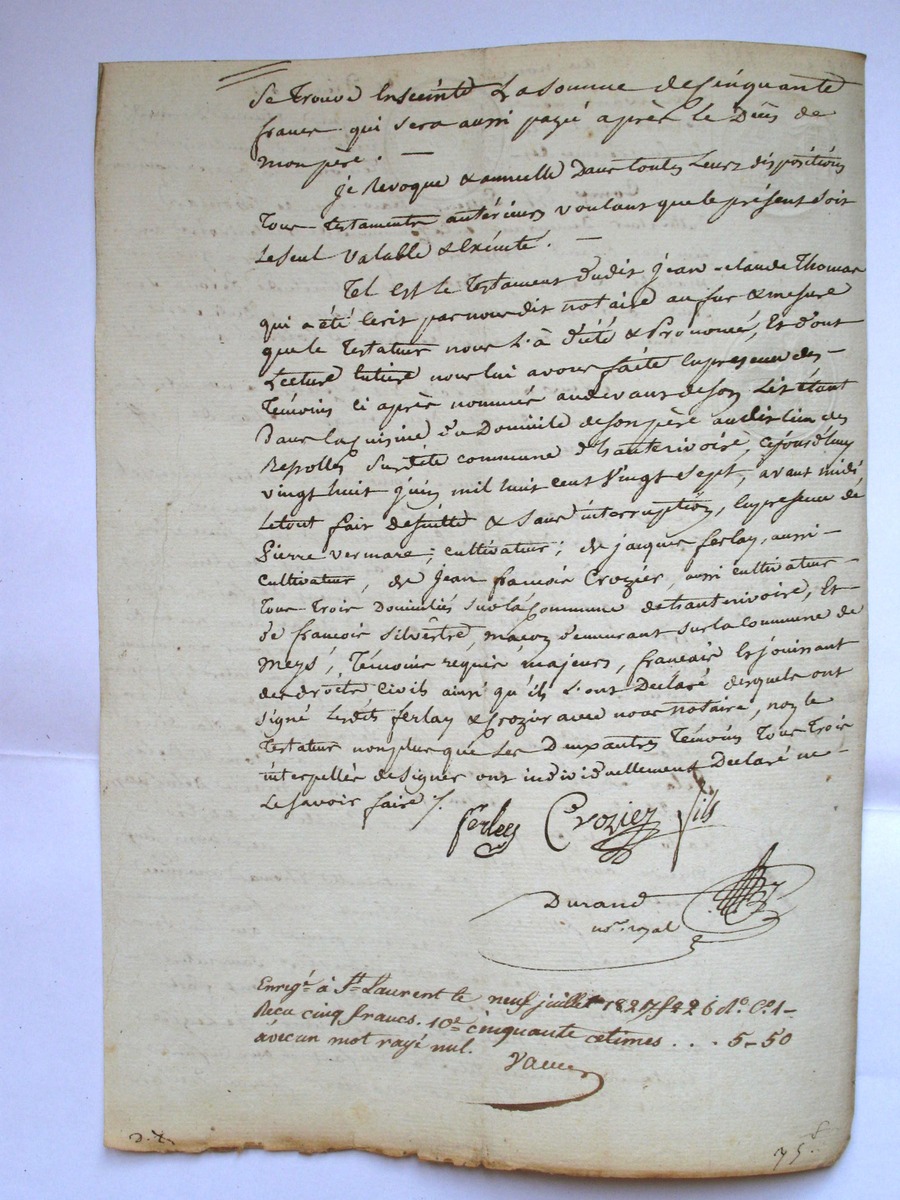 Se trouve Enseinte La somme de Cinquante
francs qui sera aussi payé après le Décès de
mon père. —
je Revoque & annulle Dans toutes Leurs dispositions
Tous testaments antérieurs voulant que le présent soit
Le seul Valable & Exécuté. —
Tel Est le Testament dudit jean-claude Thomas
qui a été Ecrit par nous dit notaire au fur & mesure
que le Testateur nous L'à dicté & Prononcé, Et dont
Lecture Entière nous lui avons faite En présence des
Temoins ci après nommés au devant de son Lit étant
Dans la cuisine du Domicile de son père au dit lieu des
Sur dite commune d'hauterivoire, cejourd'huy
vingt huit juin mil huit cent Vingt Sept, avant midi
Le tout fait de suitte & sans interruption, En présence de
Pierre vermare, cultivateur; de jacques ferlay, aussi
cultivateur, de Jean françois Crozier, aussi cultivateur
Tous Trois Domiciliés sur la Commune d'hauterivoire, Et
de françois silvêstre, maçon demeurant sur la Commune de
Meys, Témoins requis, majeurs, français Et jouissant
des droits Civils ainsi qu'ils L'ont Déclaré desquels ont
signé Lesdits ferlay & Crozier avec nous notaire, non le
Testateur non plus que Les Deux autres Témoins Tous Trois
interpellés de signer ont individuellement Déclaré ne
Le savoir faire /.
ferley Crozier fils
Durand
no.re royal
Enreg.t à S.t Laurent le neuf juillet 1827 f.° 26 R.° C.es 1-
Recu cinq francs. 10.e cinquante cetimes . . . 5-50
avec un mot rayé nul.